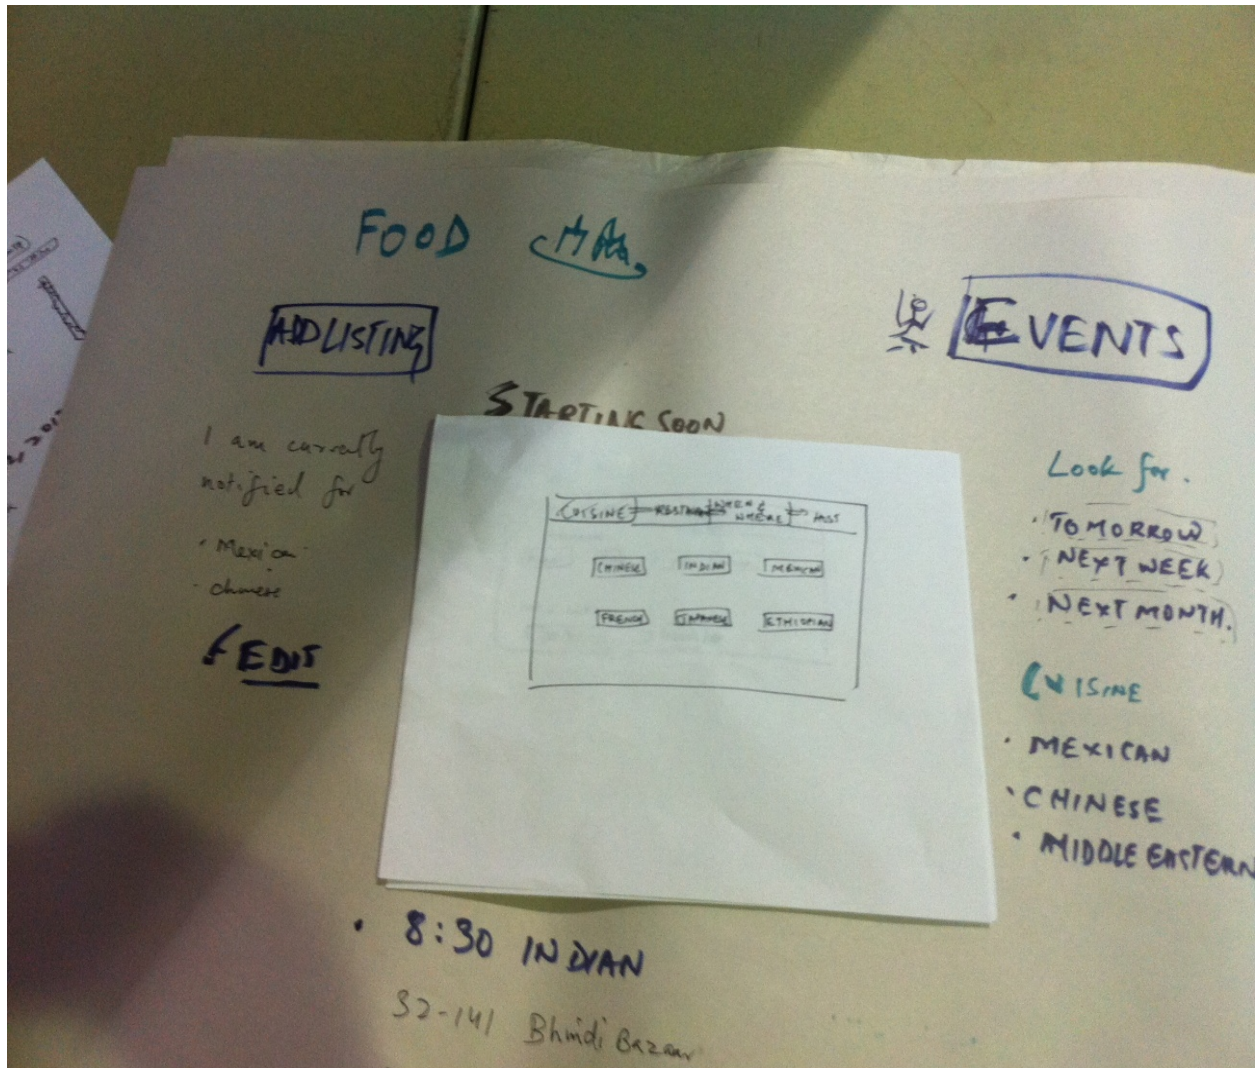 FOOD
ADD LISTING
EVENTS
STARTING SOON
I am currently
notified for
· Mexican
· chinese
EDIT
CUISINE WHEN & WHERE HOST
CHINESE INDIAN MEXICAN
FRENCH JAPANESE ETHIOPIAN
Look for.
· TOMORROW
· NEXT WEEK
· NEXT MONTH.
CUISINE
· MEXICAN
· CHINESE
· MIDDLE EASTERN
· 8:30 INDIAN
32-141 Bhindi Bazaar